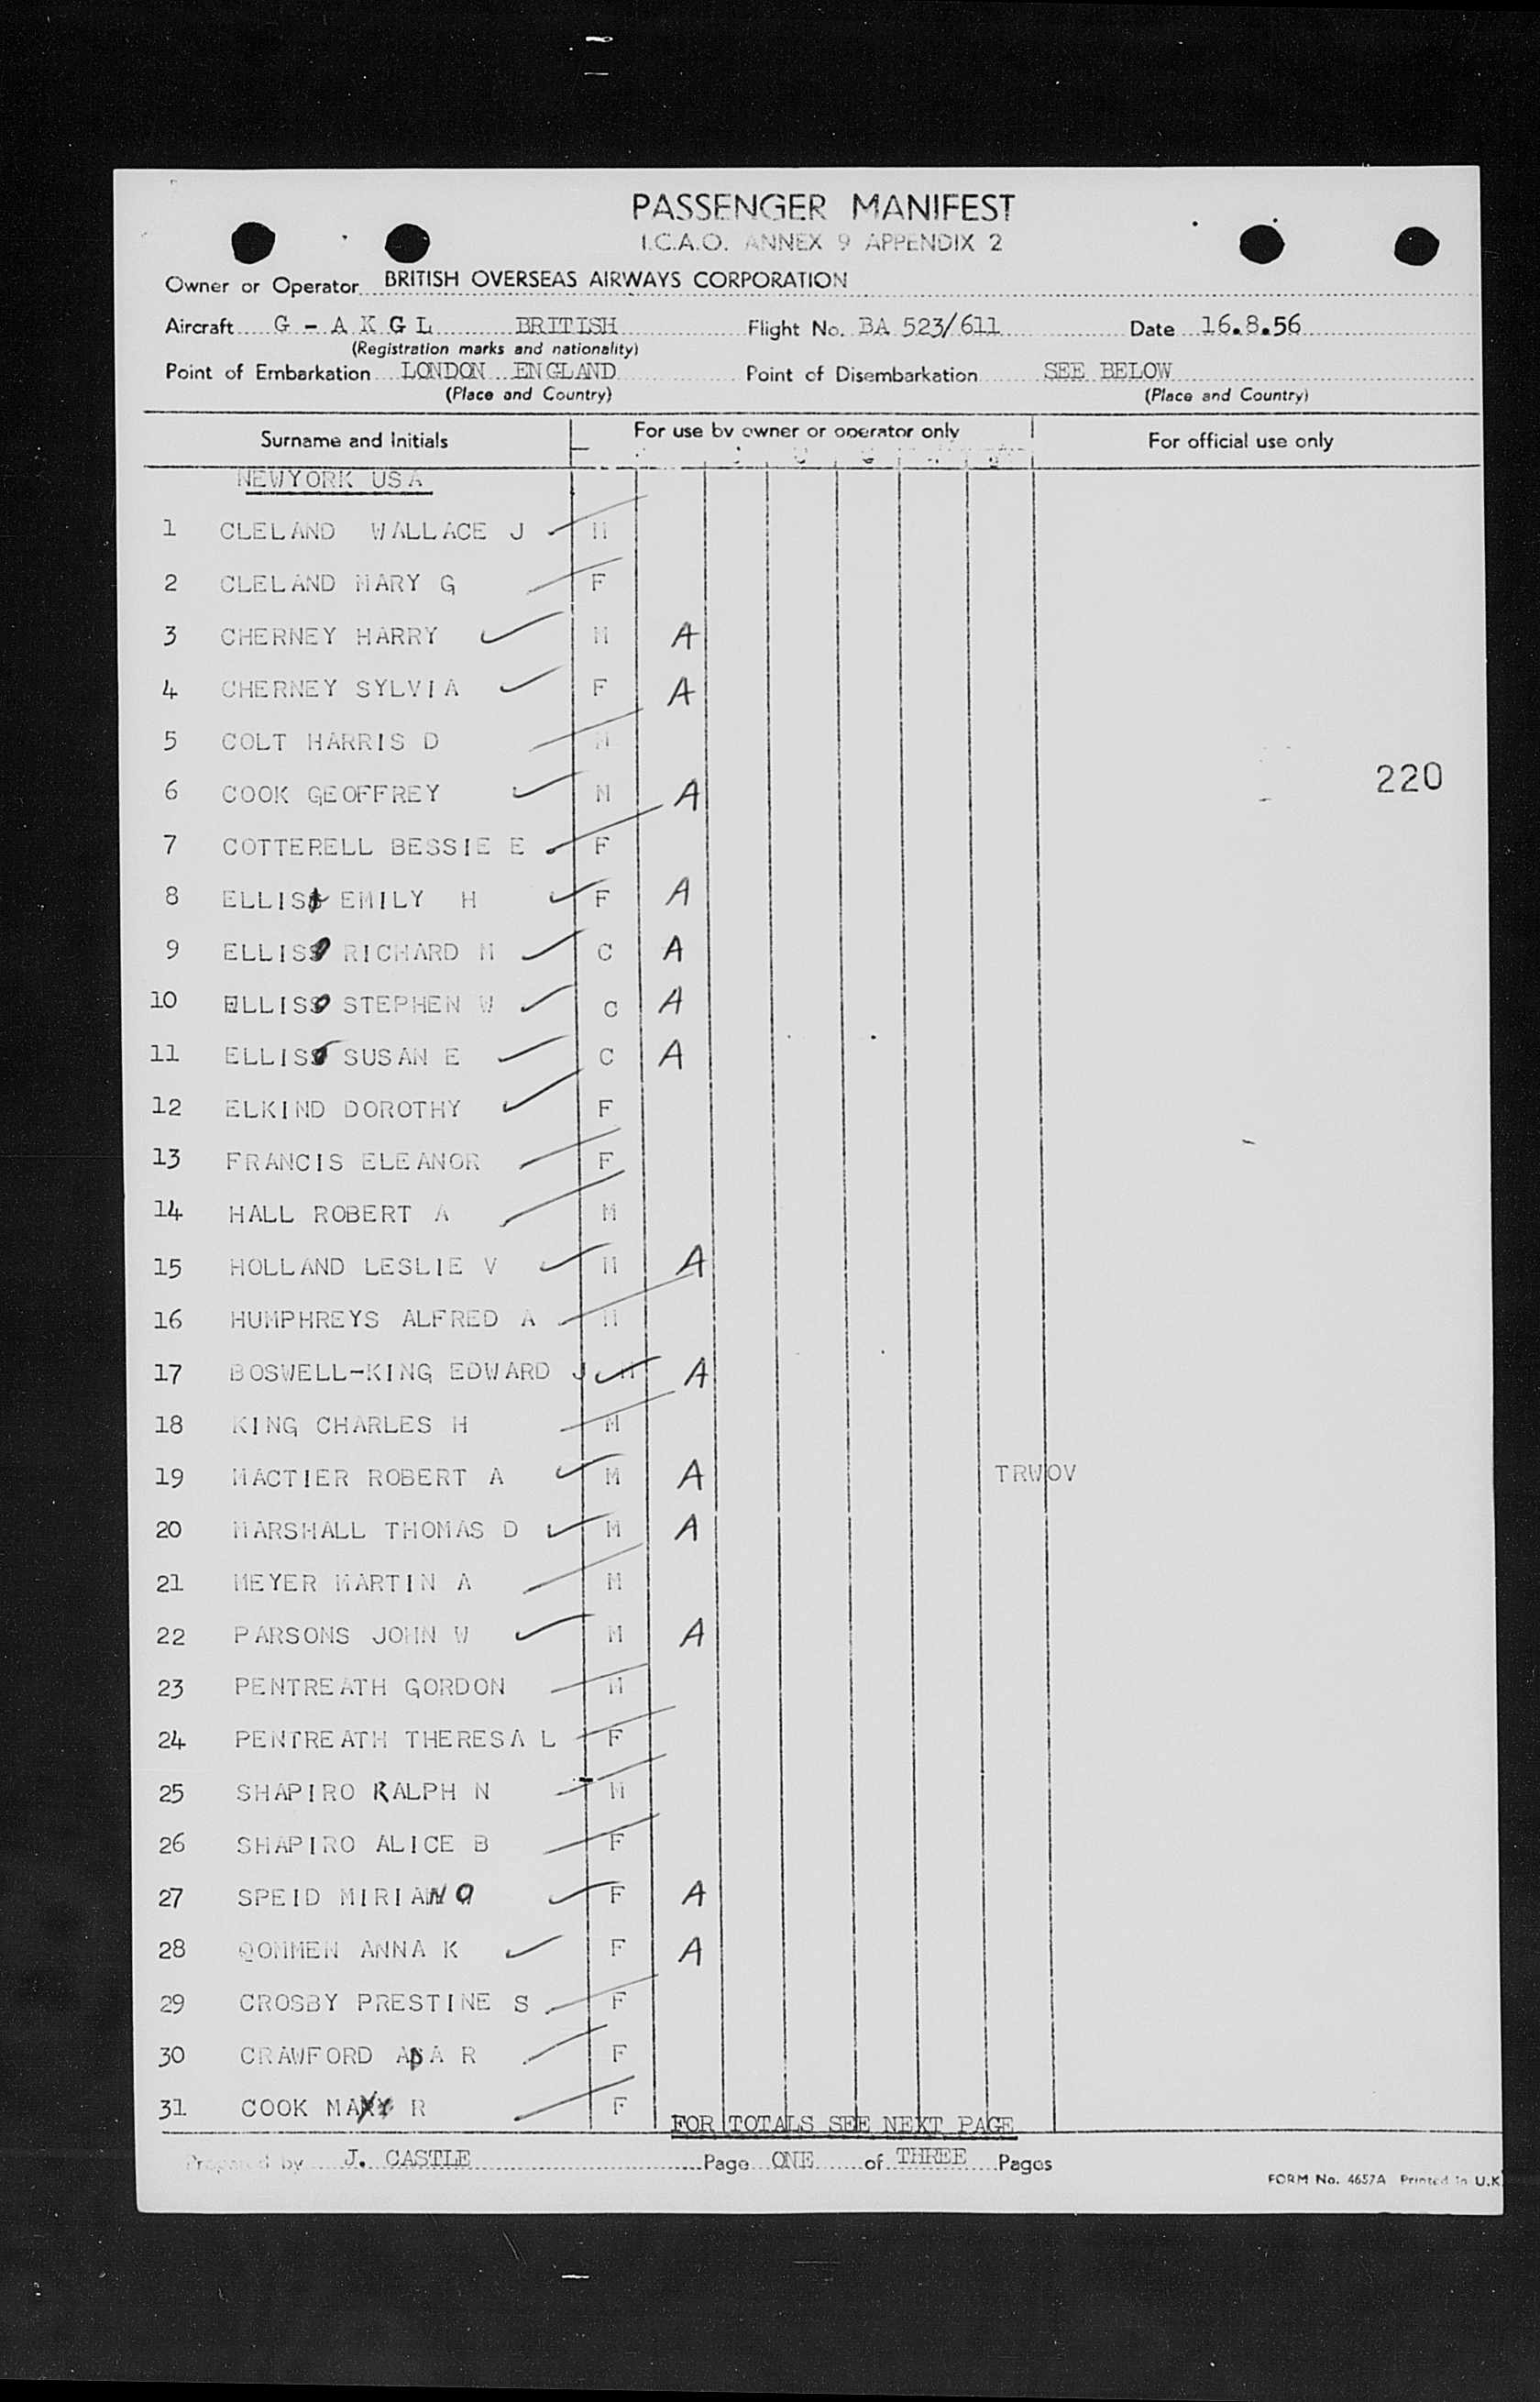 PASSENGER MANIFEST
I.C.A.O. ANNEX 9 APPENDIX 2
Owner or Operator BRITISH OVERSEAS AIRWAYS CORPORATION
Aircraft G - A K G L BRITISH Flight No. BA 523/611 Date 16.8.56
(Registration marks and nationality)
Point of Embarkation LONDON ENGLAND Point of Disembarkation SEE BELOW
(Place and Country) (Place and Country)
Surname and Initials For use by owner or operator only For official use only
NEWYORK USA
1 CLELAND WALLACE J M
2 CLELAND MARY G F
3 CHERNEY HARRY M A
4 CHERNEY SYLVIA F A
5 COLT HARRIS D M
220
6 COOK GEOFFREY M A
7 COTTERELL BESSIE E F
8 ELLIS EMILY H F A
9 ELLIS RICHARD M C A
10 ELLIS STEPHEN W C A
11 ELLIS SUSAN E C A
12 ELKIND DOROTHY F
13 FRANCIS ELEANOR F
14 HALL ROBERT A M
15 HOLLAND LESLIE V M A
16 HUMPHREYS ALFRED A M
17 BOSWELL-KING EDWARD J M A
18 KING CHARLES H M
19 MACTIER ROBERT A M A TRWOV
20 MARSHALL THOMAS D M A
21 MEYER MARTIN A M
22 PARSONS JOHN W M A
23 PENTREATH GORDON M
24 PENTREATH THERESA L F
25 SHAPIRO RALPH N M
26 SHAPIRO ALICE B F
27 SPEID F A
28 QOMMEN ANNA K F A
29 CROSBY PRESTINE S F
30 CRAWFORD ADA R F
31 COOK R F
FOR TOTALS SEE NEXT PAGE
Prepared by J. CASTLE Page ONE of THREE Pages
FORM No. 4657A Printed in U.K.